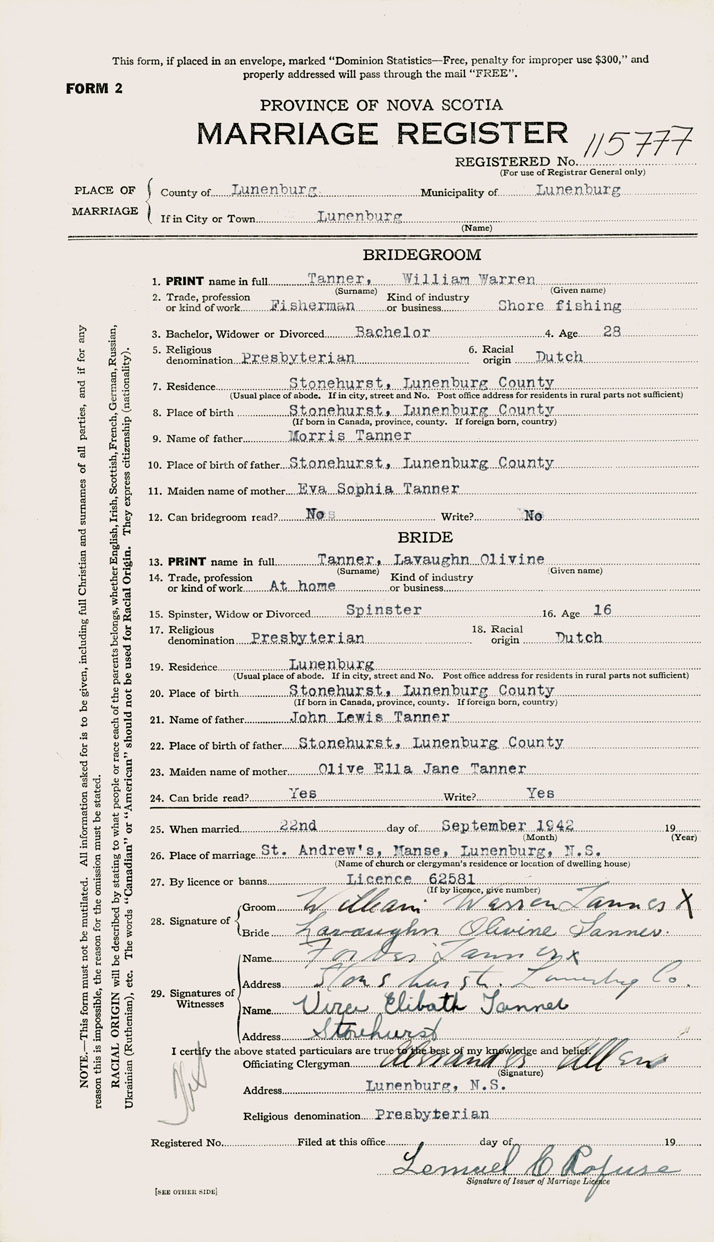 This form, if placed in an envelope, marked "Dominion Statistics—Free, penalty for improper use $300," and
properly addressed will pass through the mail "FREE".
FORM 2
PROVINCE OF NOVA SCOTIA
MARRIAGE REGISTER
REGISTERED No. 115777
(For use of Registrar General only)
PLACE OF MARRIAGE
County of Lunenburg Municipality of Lunenburg
If in City or Town Lunenburg
(Name)
BRIDEGROOM
1. PRINT name in full Tanner, William Warren
(Surname) (Given name)
2. Trade, profession or kind of work Fisherman Kind of industry or business Shore fishing
3. Bachelor, Widower or Divorced Bachelor 4. Age 28
5. Religious denomination Presbyterian 6. Racial origin Dutch
7. Residence Stonehurst, Lunenburg County
(Usual place of abode. If in city, street and No. Post office address for residents in rural parts not sufficient)
8. Place of birth Stonehurst, Lunenburg County
(If born in Canada, province, county. If foreign born, country)
9. Name of father Morris Tanner
10. Place of birth of father Stonehurst, Lunenburg County
11. Maiden name of mother Eva Sophia Tanner
12. Can bridegroom read? No Write? No
BRIDE
13. PRINT name in full Tanner, Lavaughn Olivine
(Surname) (Given name)
14. Trade, profession or kind of work At home Kind of industry or business
15. Spinster, Widow or Divorced Spinster 16. Age 16
17. Religious denomination Presbyterian 18. Racial origin Dutch
19. Residence Lunenburg
(Usual place of abode. If in city, street and No. Post office address for residents in rural parts not sufficient)
20. Place of birth Stonehurst, Lunenburg County
(If born in Canada, province, county. If foreign born, country)
21. Name of father John Lewis Tanner
22. Place of birth of father Stonehurst, Lunenburg County
23. Maiden name of mother Olive Ella Jane Tanner
24. Can bride read? Yes Write? Yes
25. When married 22nd day of September 1942 19
(Month) (Year)
26. Place of marriage St. Andrew's, Manse, Lunenburg, N.S.
(Name of church or clergyman's residence or location of dwelling house)
27. By licence or banns Licence 62581
(If by licence, give number)
28. Signature of
Groom William Warren Tanner X
Bride Lavaughn Olivine Tanner.
29. Signatures of Witnesses
Name Forbes Tanner x
Address Stonehurst. Lunenburg Co.
Name Vira Elibath Tanner
Address Stonehurst
I certify the above stated particulars are true to the best of my knowledge and belief.
Officiating Clergyman Allen
(Signature)
Address Lunenburg, N.S.
Religious denomination Presbyterian
Registered No. Filed at this office day of 19
Lemuel C Rofuse
Signature of Issuer of Marriage Licence
[SEE OTHER SIDE]
NOTE.—This form must not be mutilated. All information asked for is to be given, including full Christian and surnames of all parties, and if for any
reason this is impossible, the reason for the omission must be stated.
RACIAL ORIGIN will be described by stating to what people or race each of the parents belongs, whether English, Irish, Scottish, French, German, Russian,
Ukrainian (Ruthenian), etc. The words "Canadian" or "American" should not be used for Racial Origin. They express citizenship (nationality).